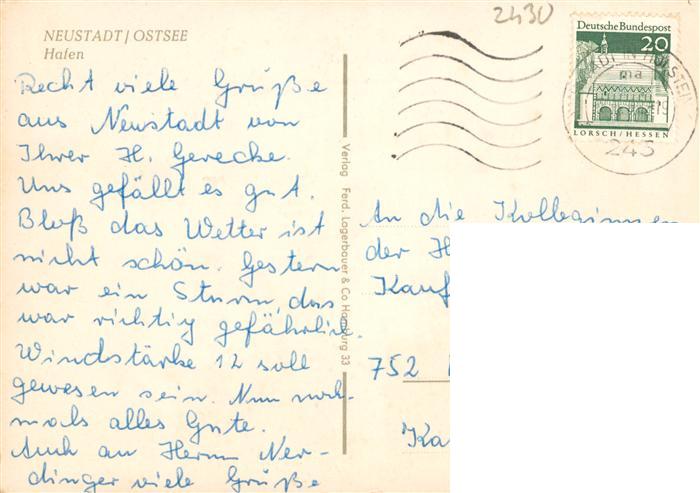 2430
NEUSTADT / OSTSEE
Hafen
Recht viele Grüße
aus Neustadt von
Ihrer H. Gerecke.
Uns gefällt es gut.
Bloß das Wetter ist
nicht schön. Gestern
war ein Sturm, das
war richtig gefährlich.
Windstärke 12 soll
gewesen sein. Nun noch-
mals alles Gute.
Auch an Herrn Ner-
dinger viele Grüße
Verlag Ferd. Lagerbauer & Co Hamburg 33
Deutsche Bundespost
20
LORSCH / HESSEN
IN HOLSTEIN
ma
245
An die Kolleginnen
der H
Kauf
752
Ka